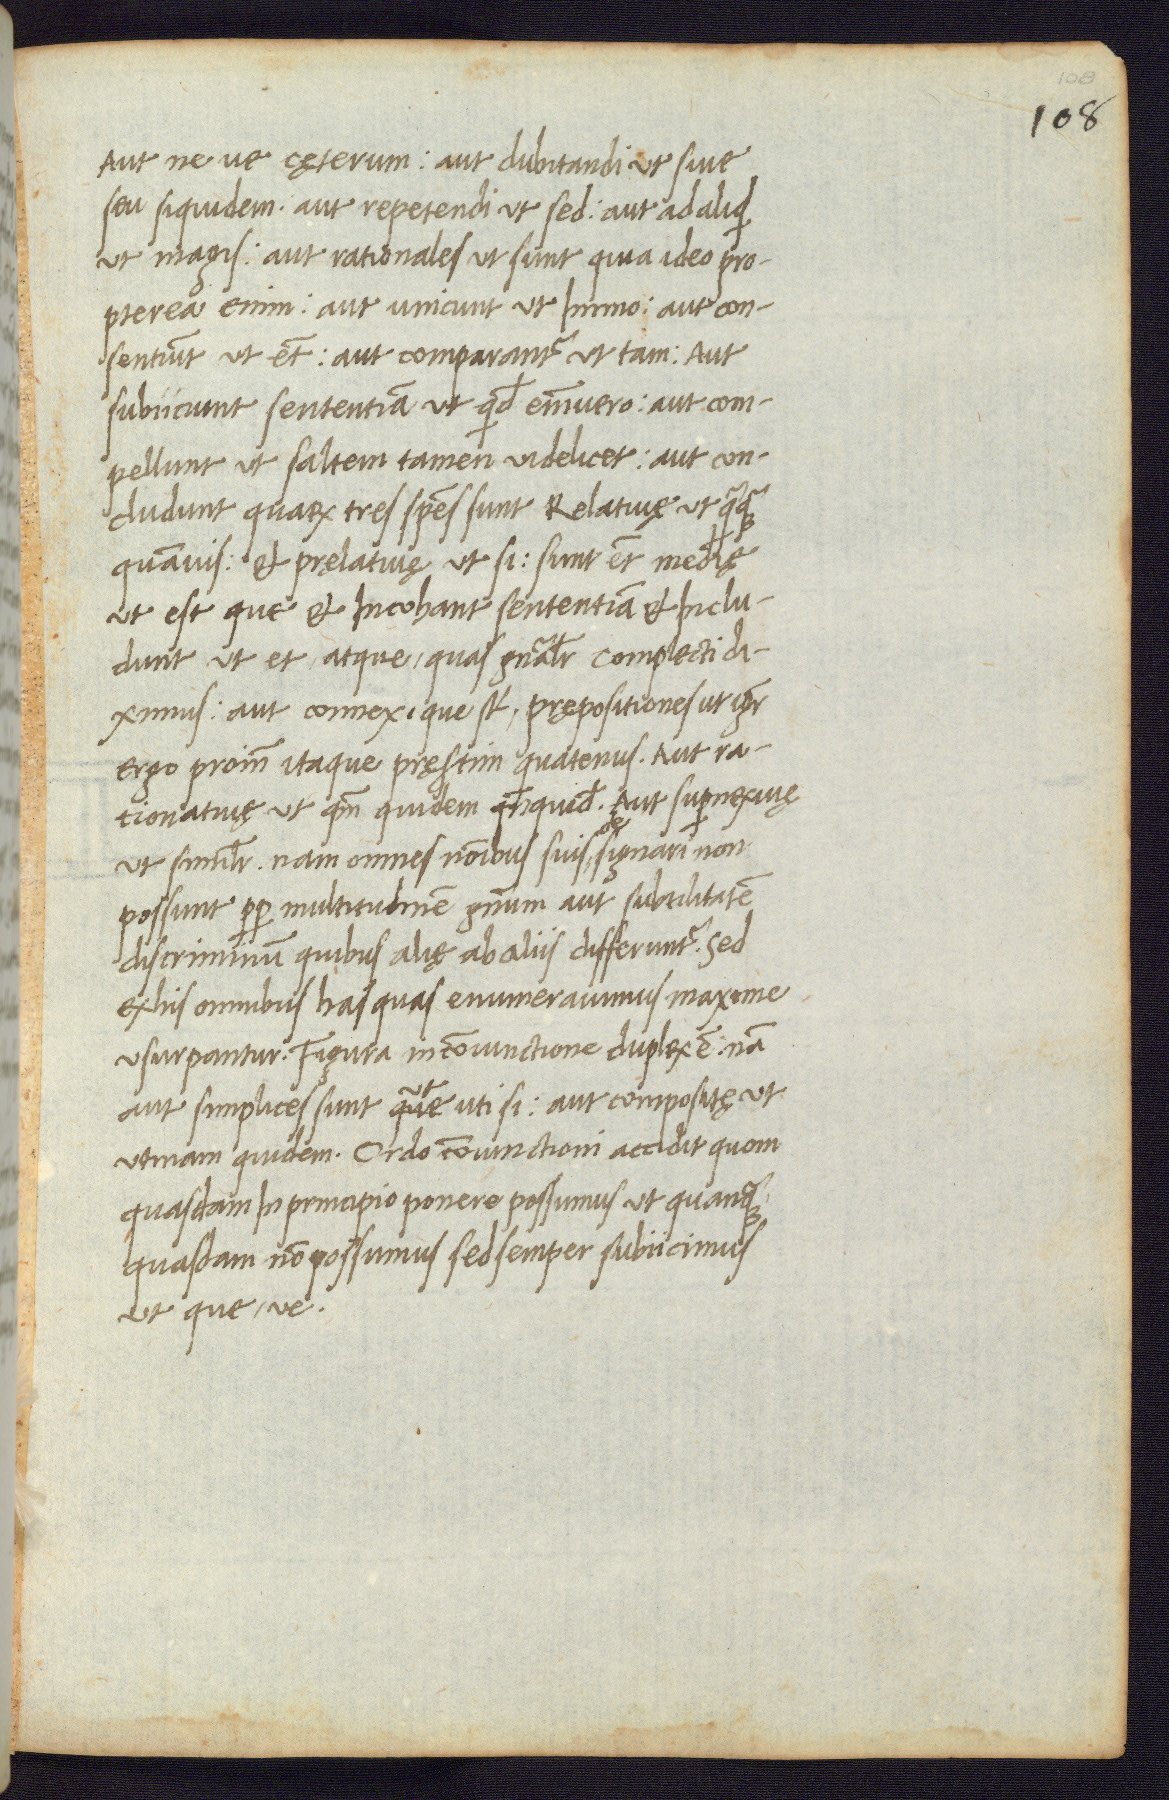 108
108
Aut ne ue cęterum: aut dubitandi ut siue
seu siquidem. aut repetendi ut sed: aut ad aliqd
ut magis: aut rationales ut sunt quia ideo pro-
pterea enim: aut unicunt ut Immo: aut con-
sentiūt ut ēt: aut comparant᷑ ut tam: Aut
subiicunt sententiā ut qd̄ em̄uero: aut com-
pellunt ut saltem tamen uidelicet: aut con-
cludunt quaꝝ tres spēs sunt Relatiuę ut qāqꝫ
quāuis: & pręlatiuę ut si: sunt ēt medię
ut est que & Incohant sententiā & Inclu-
dunt ut et, atque, quas gnāłr complecti di-
ximus: aut connexi que st̄, prępositiones ut igr̄
ergo proin̄ itaque pręstim quatenus. Aut ra-
tionatiuę ut qm̄ quidem qn̄quid̄. Aut supnexiuę
ut similr̄. nam omnes nōibus suis, oę signari non
possunt pp̄ multitudinē gn̄um aut subtilitatē
discriminū quibus alię ab aliis differunt᷑. Sed
ex his omnibus has quas enumerauimus maxime
usurpantur. Figura in cōiunctione duplex ē: nā
aut simplices sunt ut que uti si: aut compositę ut
utinam quidem. Ordo cōiunctioni accidit quom
quasdam In principio ponere possumus ut quanqꝫ
quasdam nō possumus sed semper subiicimus
ut que, ue.